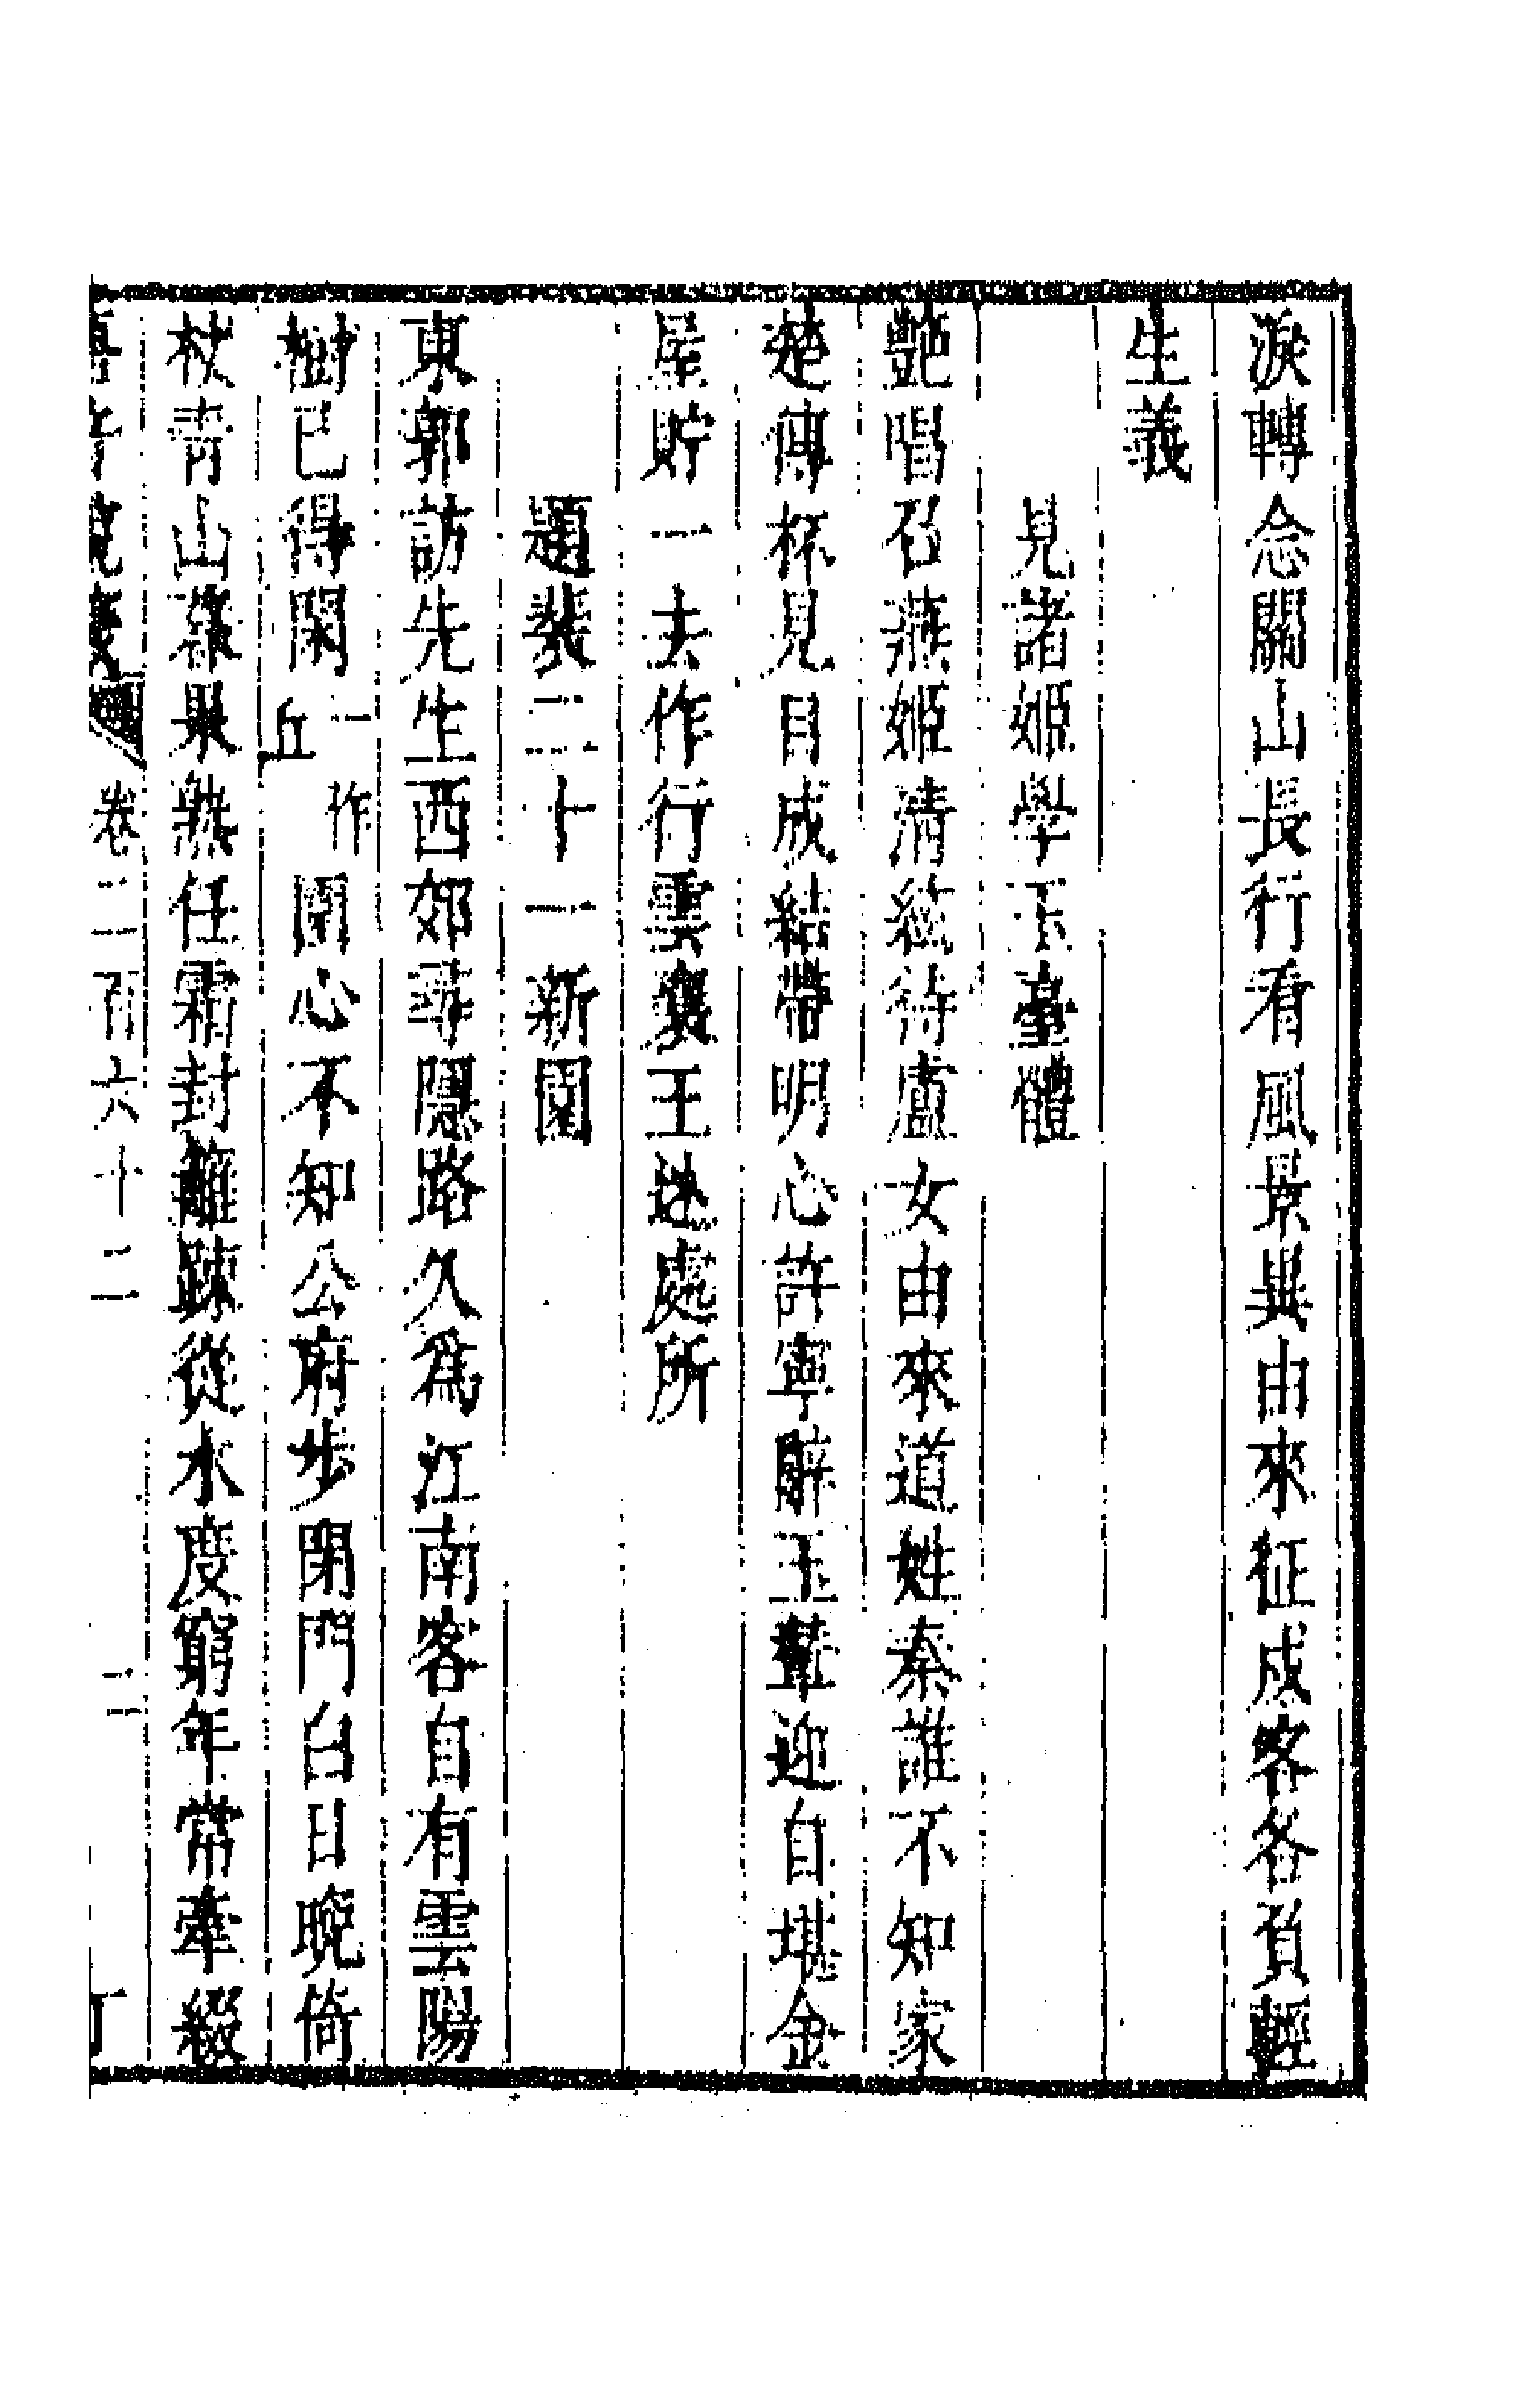 淚轉念關山長行看風景異由來征戍客各負輕
生義
見諸姬學玉臺體
艷唱召燕姬清絃待盧女由來道姓秦誰不知家
楚傳杯見目成結帶明心許寧辭玉輦迎自堪金
屋貯一去作行雲襄王迷處所
題裴二十一新園
東郭訪先生西郊尋隱路久爲江南客自有雲陽
樹已得閑一作丘園心不知公府步閉門白日晚倚
杖青山暮果熟任霜封籬踈從水度窮年常牽綴
卷二百六十二 二